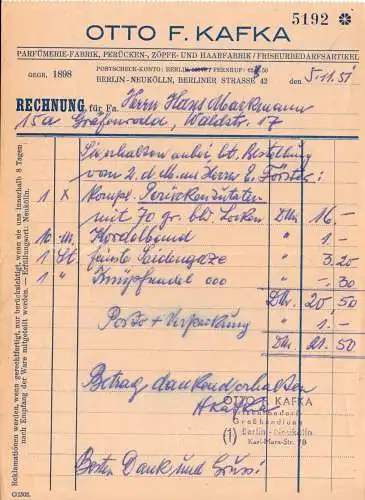 5192
OTTO F. KAFKA
PARFÜMERIE-FABRIK, PERÜCKEN-, ZÖPFE- UND HAARFABRIK / FRISEURBEDARFSARTIKEL
GEGR. 1898
POSTSCHECK-KONTO: BERLIN FERNRUF:
BERLIN-NEUKÖLLN, BERLINER STRASSE 42
den 5.11.51
RECHNUNG, für Fa. Herrn Hans Mackmann
15a Gräfenwald, Waldstr. 17
Sie erhalten anbei lt. Bestellung
von 2. d. M. von Herrn E. Förster:
1 x kompl. Perückenzutaten
mit 70 gr. bld. Locken DM 16.—
10 m. Kordelband " 1.—
1 St. feinste Seidengaze " 3.20
1 " Knüpfnadel 000 " —.30
DM. 20,50
Porto + Verpackung " 1.—
DM. 21.50
Betrag dankend erhalten
OTTO F. KAFKA
Friseurbedarf
Großhandlung
(1) Berlin-Neukölln
Karl-Marx-Str. 78
Besten Dank und Gruss!
Reklamationen werden, wenn gerechtfertigt, nur berücksichtigt, wenn sie uns innerhalb 8 Tagen
nach Empfang der Ware mitgeteilt werden. — Erfüllungsort: Neukölln.